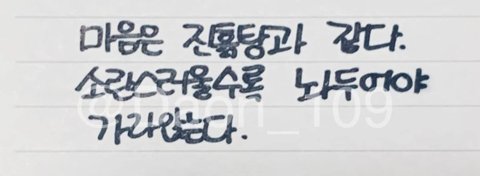 마음은 진흙탕과 같다.
소란스러울수록 놔두어야
가라앉는다.
@Daon_109